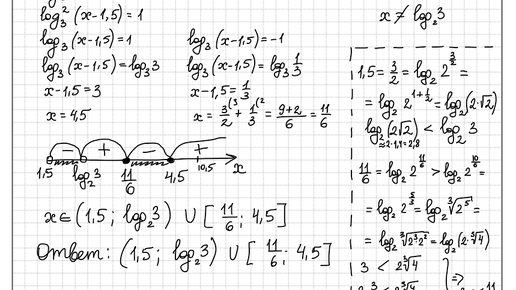 log₃²(x-1,5) = 1
log₃(x-1,5) = 1
log₃(x-1,5) = -1
log₃(x-1,5) = log₃3
log₃(x-1,5) = log₃ 1/3
x-1,5 = 3
x-1,5 = 1/3
x = 4,5
x = 3/2 + 1/3 = (9+2)/6 = 11/6
- + - +
1,5 log₂3 11/6 4,5 10,5 x
x ∈ (1,5; log₂3) ∪ [11/6; 4,5]
Ответ: (1,5; log₂3) ∪ [11/6; 4,5]
x ≠ log₂3
1,5 = 3/2 = log₂2^(3/2) =
= log₂2^(1+1/2) = log₂(2·√2)
log₂(2√2) < log₂3
≈2·1,4=2,8
11/6 = log₂2^(11/6) > log₂2^(10/6) =
= log₂2^(5/3) = log₂∛2⁵ =
= log₂∛(2³2²) = log₂(2·∛4)
3 < 2∛4
⇒